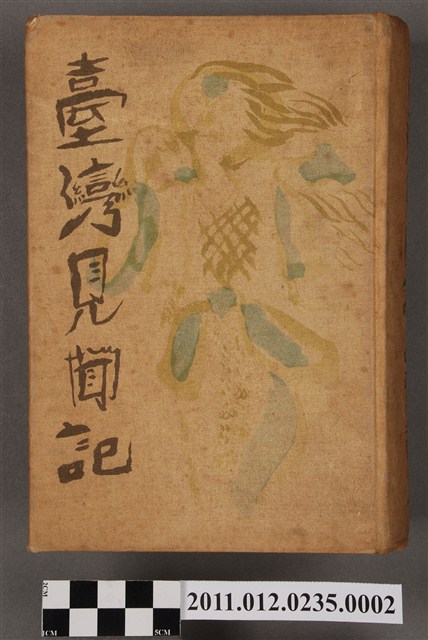 臺灣見聞記
2CM
1CM
5CM
2011.012.0235.0002